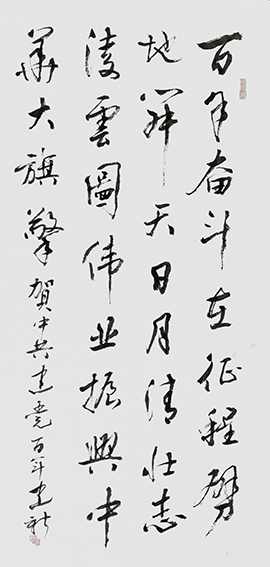 百年奋斗在征程劈
地开天日月清壮志
凌云图伟业振兴中
华大旗擎 贺中共建党百年 建新